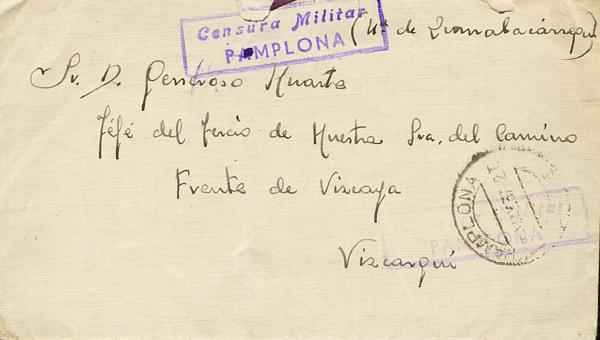 Censura Militar
PAMPLONA
(4ª de Zumalacárregui)
Sr. D. Generoso Huarte
Jéfé del Tercio de Nuestra Sra. del Camino
Frente de Vizcaya
Vizcargui
PAMPLONA
PAMPLONA